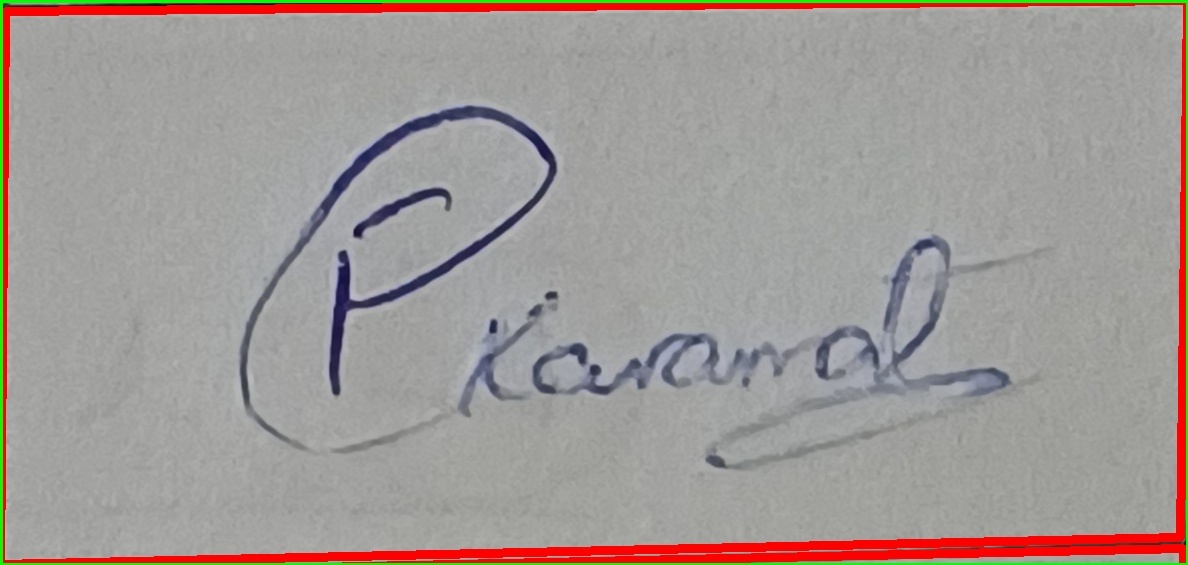 P Karamal